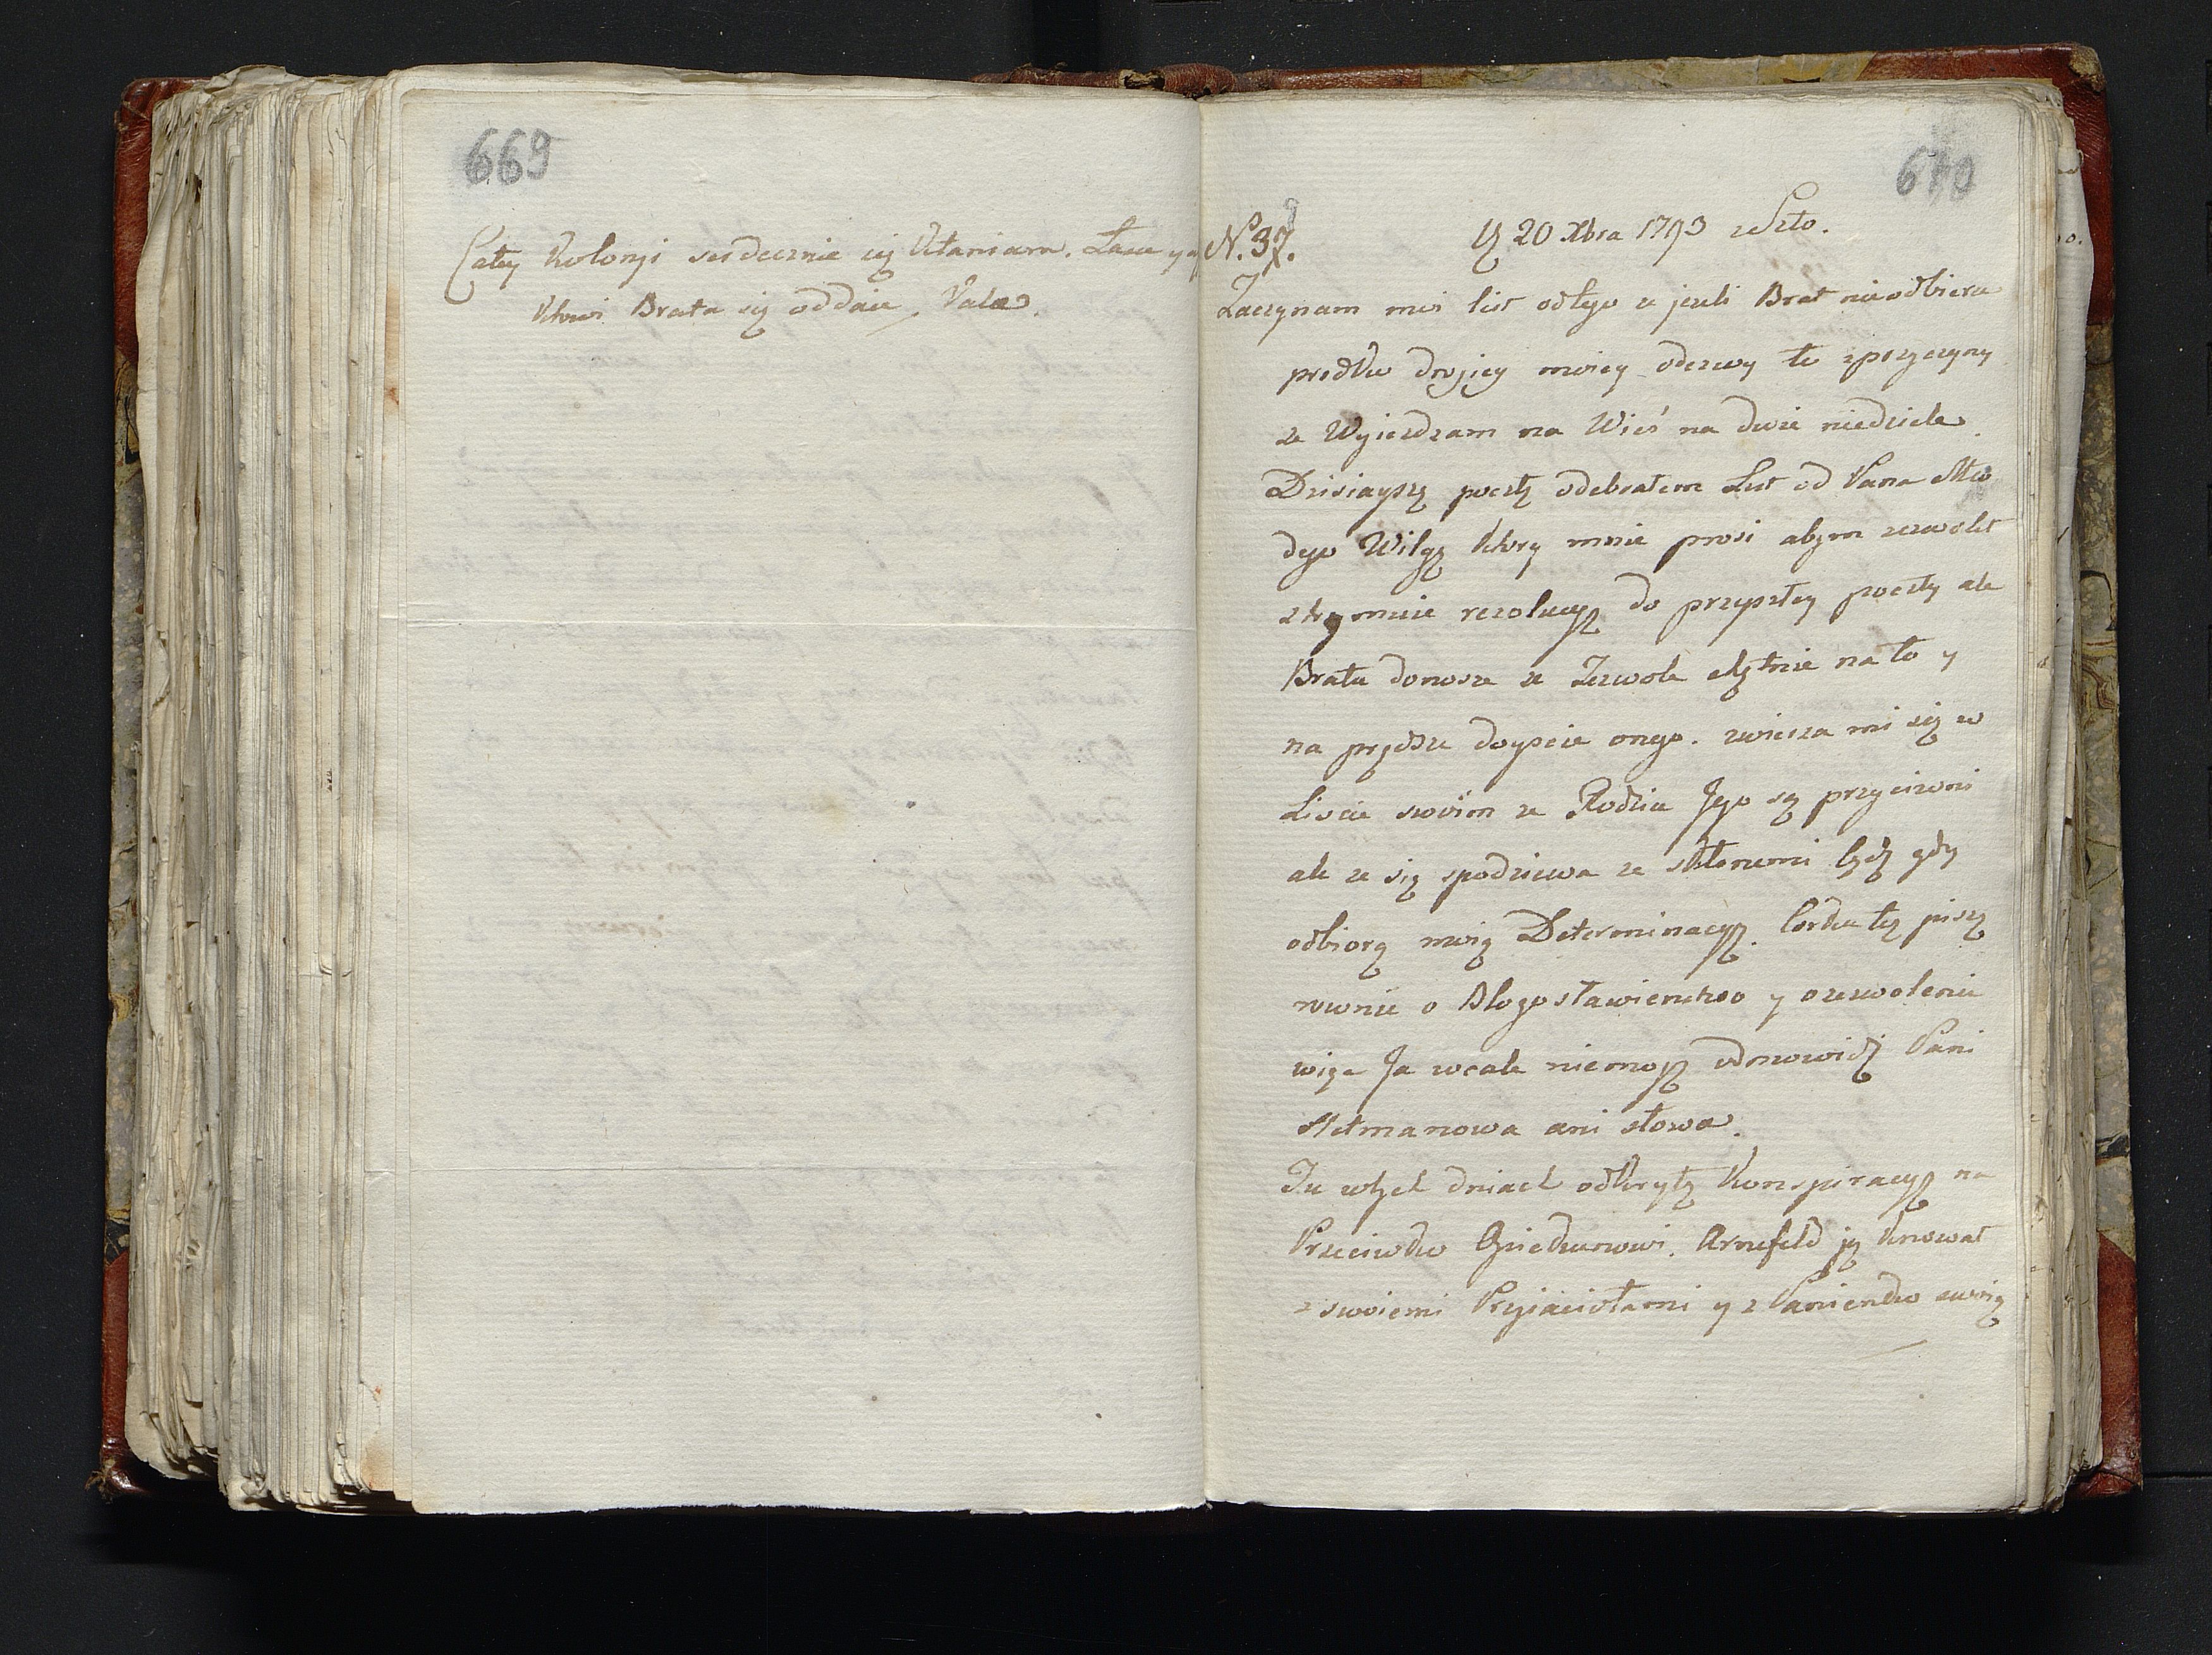 669
Całey Kolonji serdecznie się Kłaniam. Łasce y a
ktowi Brata się oddaie, Vale.
670
N. 37. D 20 Xbra 1793 z Szto.
Zaczynam mui list odtego ze jezeli Brat nieodbiera
prodko drugiey moiey odezwy to zprzyczyny
ze Wyiezdzam na Wieś na dwie niedziele.
Dzisiayszą pocztą odebrałem List od Pana Mło
dego Wilgę ktory mnie prosi abym zezwolił
zatrzymuie rezolucyą do przyszłey poczty ale
Bratu donosze ze Zezwole chętnie na to y
na prędsze doyscie onego. zwierza mi się w
Liscie swoim ze Rodzice Jego są przyciwni
ale ze się spodziewa ze skłonnemi będą gdy
odbiorą moią Determinacyą. Corka też piszę
rownie o Błogosławienstwo y ozezwolenie
więc Ja wcale niemogę odmowić Pani
Hetmanowa ani słowa.
Tu wtych dniach odkrytą Konspiracyą na
Przeciwko Xięciu. Armfeld ją knował
z swoiemi Przyiaciołami y z Panienko swoią